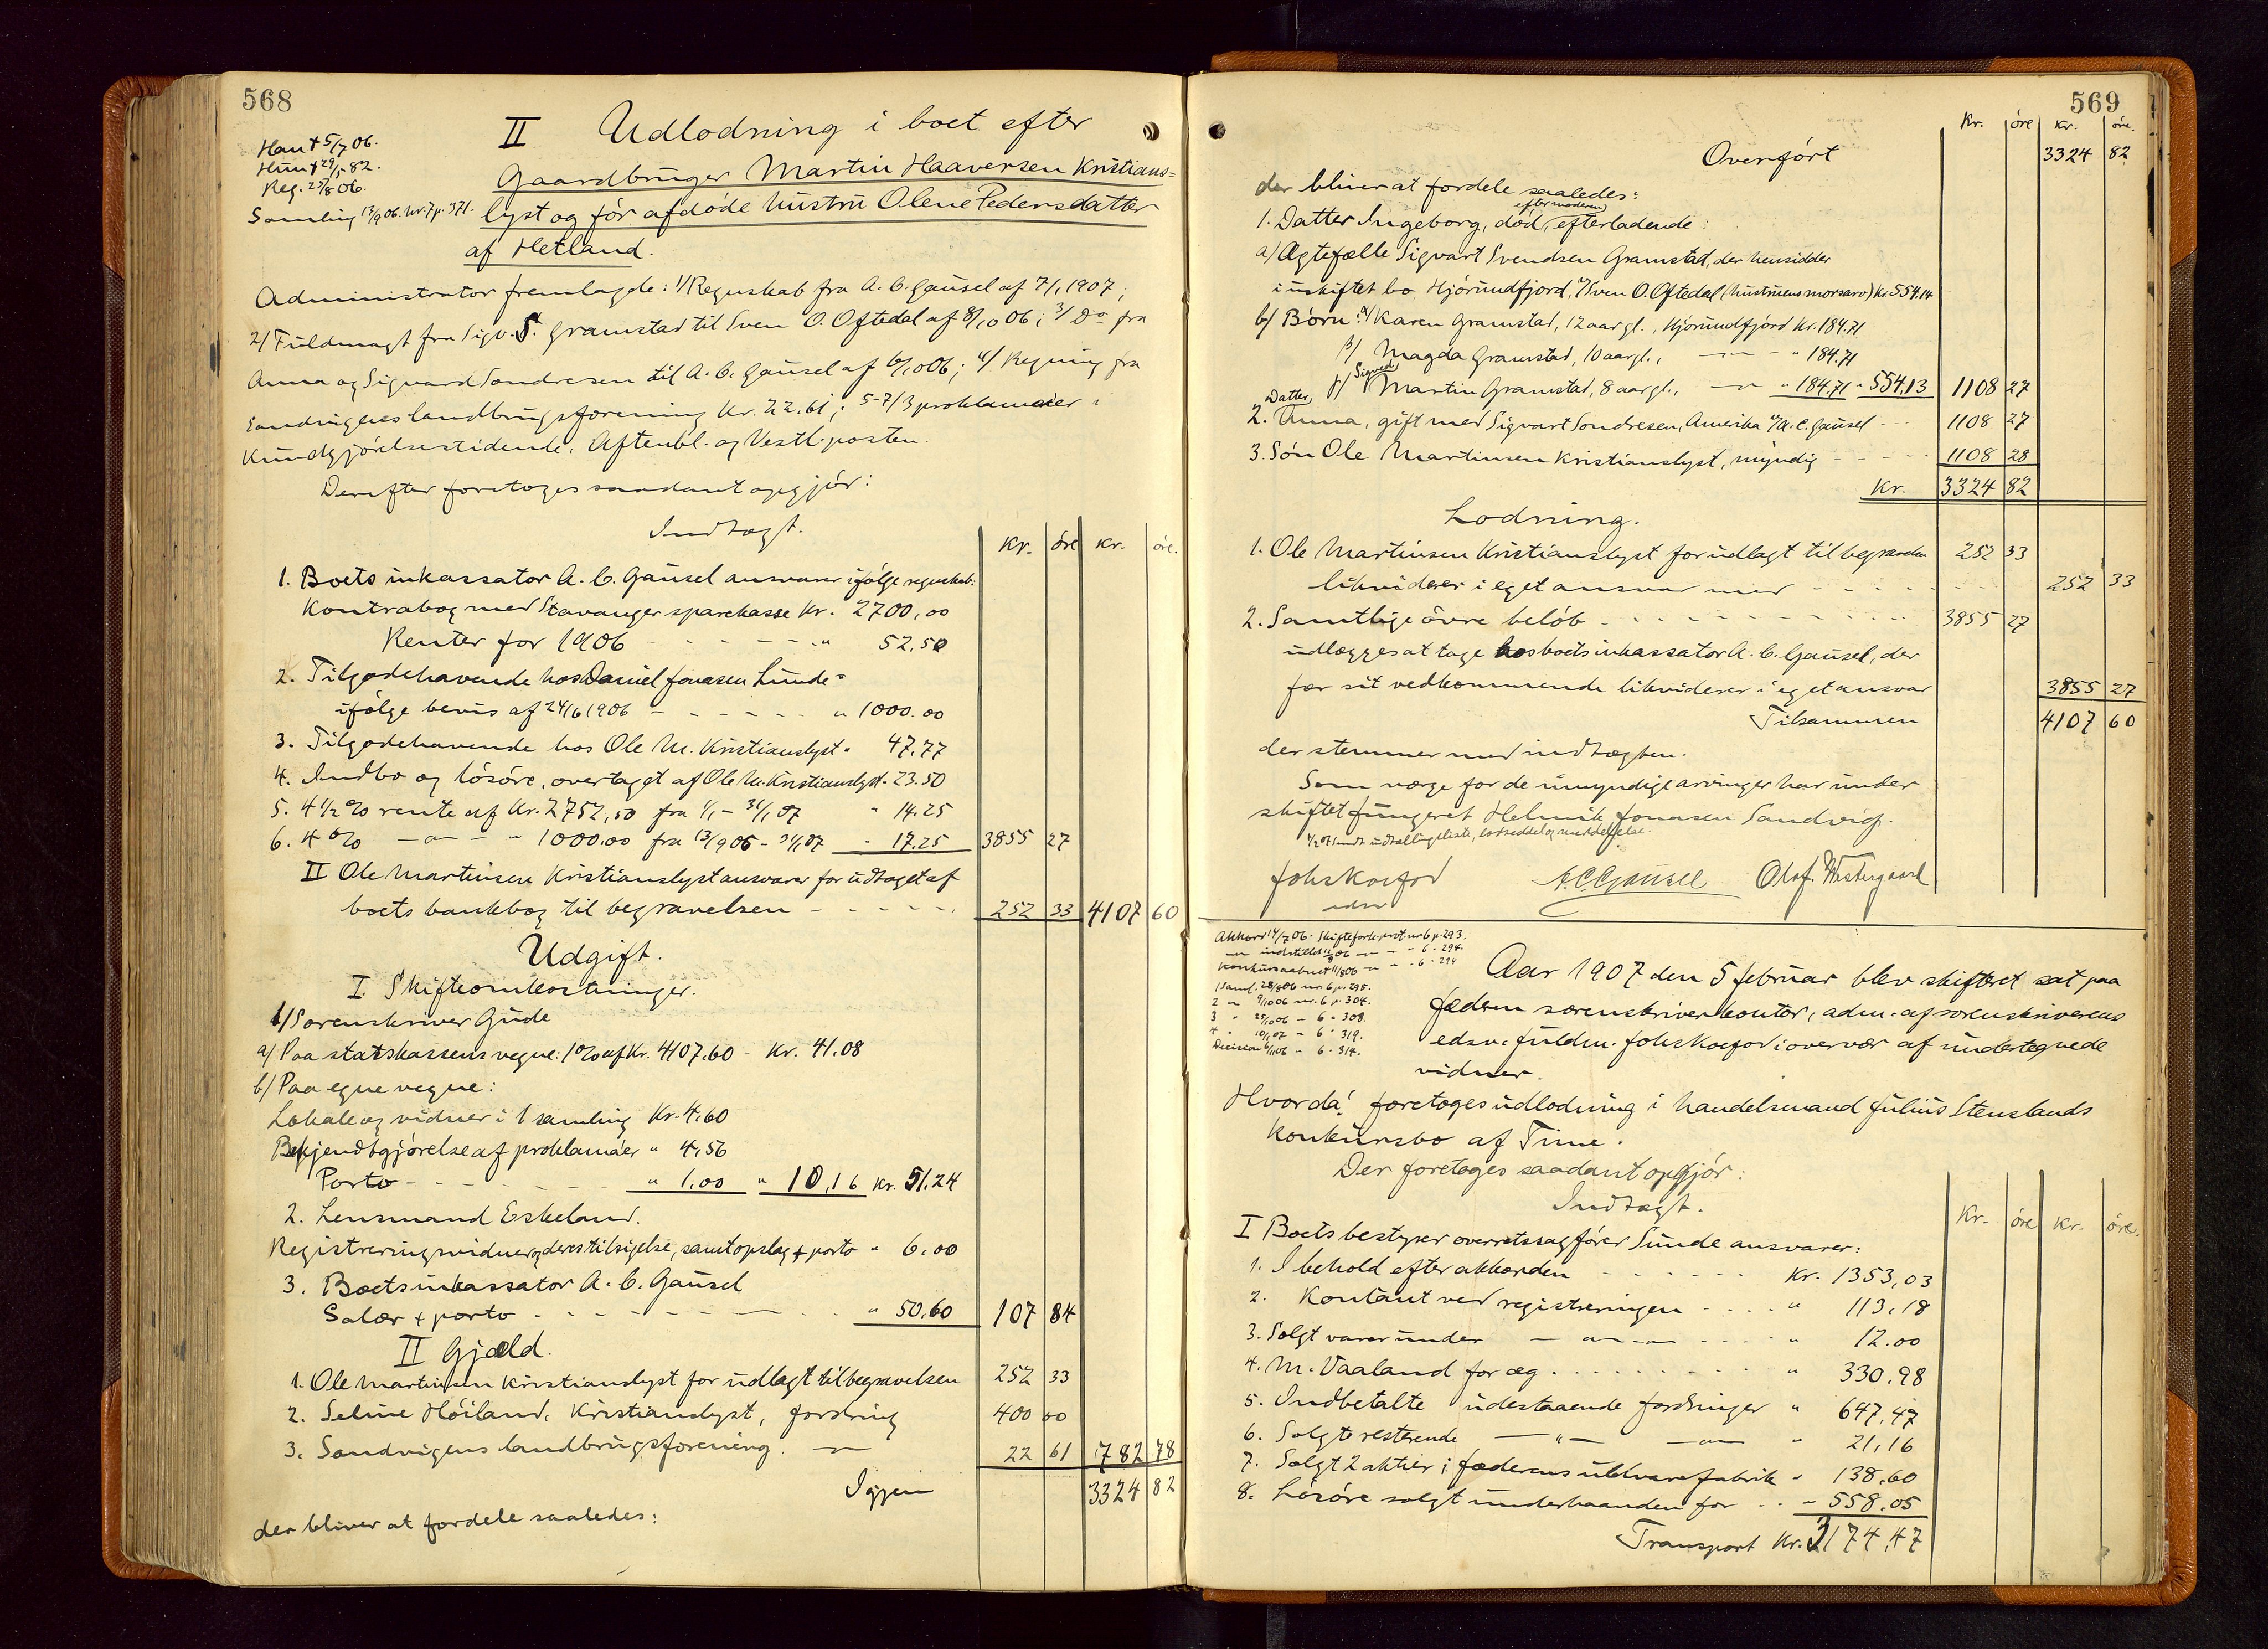 568
Han † 5/7 06.
Hun † 29/5 82.
Reg. 25/8 06.
Samling 13/9 06. nr. 7 p. 371.
II Udlodning i boet efter
Gaardbruger Martin Haaversen Kristians=
lyst og før afdøde hustru Olene Pedersdatter
af Hetland.
Administrator fremlagde: 1/ Regnskab fra A. C. Gausel af 7/1 1907;
2/ Fuldmagt fra Sigv. S. Gramstad til Sven O. Oftedal af 8/10 06; 3/ Do fra
Anna og Sigvard Sondresen til A. C. Gausel af 6/10 06; 4/ Regning fra
Sandvigens landbrugsforening Kr. 22.61; 5-7/ 3 proklamaer i
Kundgjørelsestidende, Aftenbl. og Vestl. posten.
Derefter foretoges saadant opgjør:
Indtægt.
Kr. øre Kr. øre.
1. Boets inkassator A. C. Gausel ansvarer ifølge regnskab:
Kontrabog med Stavanger sparekasse Kr. 2700,00
Renter for 1906 - - - - - - " 52,50
2. Tilgodehavende hos Daniel Jonasen Lunde=
ifølge bevis af 24/6 1906 - - - - - " 1000.00
3. Tilgodehavende hos Ole M. Kristianslyst " 47,77
4. Indbo og løsøre, overtaget af Ole M. Kristianslyst - 23.50
5. 4 1/2 % rente af Kr. 2752,50 fra 1/1 - 31/1 07 " 14.25
6. 4 % -"- - " 1000.00 fra 13/9 06 - 31/1 07 - 17.25 3855 27
II Ole Martinsen Kristianslyst ansvarer for udtaget af
boets bankbog til begravelsen - - - - - 252 33 4107 60
Udgift.
I. Skifteomkostninger.
1/ Sorenskriver Gude
a/ Paa statskassens vegne: 1% af Kr. 4107.60 - Kr. 41.08
b/ Paa egne vegne:
Lokale og vidner i 1 samling Kr. 4.60
Bekjendtgjørelse af proklamaer " 4,56
Porto - - - - - - - " 1.00 " 10,16 Kr. 51.24
2. Lensmand Eskeland.
Registreringsvidner og deres tilsigelse, samt opslag + porto " 6.00
3. Boets inkassator A. C. Gausel
Salær + porto - - - - - - - " 50.60 107 84
II Gjæld.
1. Ole Martinsen Kristianslyst for udlagt til begravelsen 252 33
2. Seline Høiland, Kristianslyst, fordring 400 00
3. Sandvigens landbrugsforening. -"- 22 61 782 78
Igjen 3324 82
der bliver at fordele saaledes:
569
Kr. øre Kr. øre.
Overført 3324 82
der bliver at fordele saaledes:
1. Datter Ingeborg, død, (efter moderen) efterladende:
a/ Ægtefælle Sigvart Svendsen Gramstad, der hensidder
i uskiftet bo, Hjørundfjord, v/ Sven O. Oftedal (hustruens morsarv) Kr. 554.14
b/ Børn: α/ Karen Gramstad, 12 aar gl., Hjørundfjord Kr. 184.71
β/ Magda Gramstad, 10 aar gl., -"- - " 184.71
γ/ Sigvald Martin Gramstad, 8 aar gl., -"- " 184.71 - 554.13 1108 27
2. Datter Anna, gift med Sigvart Sondresen, Amerika v/ A. C. Gausel - - - 1108 27
3. Søn Ole Martinsen Kristianslyst, myndig - - - - - 1108 28
Kr. 3324 82
Lodning.
1. Ole Martinsen Kristianslyst for udlagt til begravelsen 252 33
likviderer i eget ansvar med - - - - - - - 252 33
2. Samtlige øvre beløb - - - - - - - - - - 3855 27
udlægges at tage hos boets inkassator A. C. Gausel, der
for sit vedkommende likviderer i eget ansvar 3855 27
Tilsammen 4107 60
der stemmer med indtægten.
Som verge for de umyndige arvinger har under
skiftet fungeret Helmik Jonasen Sandvig.
4/2 07 sendt udtællingsliste, lodseddel og meddelelse.
Joh Skorfod A. C. Gausel Olaf Westergaard
edsv
Akkord 14/7 06. Skifteforh. prot. nr. 6 p. 293.
-"- indstillet 11/8 06 -"- - " 6 - 294.
Konkursaabnet 11/8 06 -"- - " 6 - 294
1 Saml. 28/8 06 nr. 6 p. 295.
2 -"- 9/10 06 nr. 6 p. 304.
3 " 25/10 06 - 6 - 308.
4 " 10/1 07 - 6 - 319.
Decision 6/11 06 - 6 - 314.
Aar 1907 den 5 februar blev skifteret sat paa
Jæderen sorenskriverkontor, adm. af sorenskriverens
edsv. fuldm. Joh Skorfod i overvær af undertegnede
vidner.
Hvorda! foretoges udlodning i handelsmand Julius Stenslands
konkursbo af Time.
Der foretoges saadant opgjør:
Indtægt.
Kr. øre Kr. øre.
I Boets bestyrer overretssagfører Sunde ansvarer:
1. I behold efter akkorden - - - - - - Kr. 1353,03
2. Kontant ved registreringen - - - - " 113,18
3. Solgt varer under -"- - - - " 12.00
4. M. Vaaland for æg . . . . . . . " 330.98
5. Indbetalte udestaaende fordringer " 647,47
6. Solgte resterende -"- -"- " 21,16
7. Solgt 2 aktier i Jæderens uldvarefabrik " 138,60
8. Løsøre solgt underhaanden for - - - 558.05
Transport Kr. 3174,47